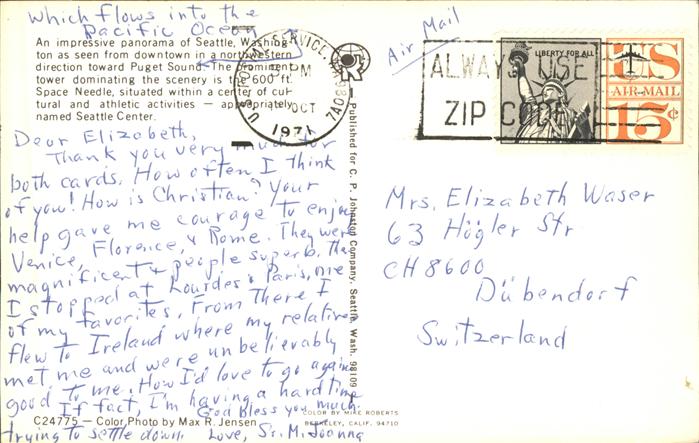 which flows into the
Pacific Ocean
An impressive panorama of Seattle, Washing-
ton as seen from downtown in a northwestern
direction toward Puget Sound. The prominent
tower dominating the scenery is the 600 ft.
Space Needle, situated within a center of cul-
tural and athletic activities — appropriately
named Seattle Center.
Dear Elizabeth,
Thank you very much for
both cards. How often I think
of you! How is Christian? Your
help gave me courage to enjoy
Venice, Florence, & Rome. They were
magnificent & people superb. Then
I stopped at Lourdes & Paris, one
of my favorites. From There I
flew to Ireland where my relatives
met me and were unbelievably
good to me. How I'd love to go again
If fact, I'm having a hard time
trying to settle down.
God bless you much
Love, Sr. M. Joanna
C24775 — Color Photo by Max R. Jensen
COLOR BY MIKE ROBERTS
BERKELEY, CALIF. 94710
Published for C. P. Johnston Company, Seattle, Wash. 98109
U.S. POSTAL SERVICE
PM
OCT
1971
ALWAYS USE
ZIP CODE
LIBERTY FOR ALL
US
AIR MAIL
15¢
Air Mail
Mrs. Elizabeth Waser
63 Högler Str
CH 8600
Dübendorf
Switzerland